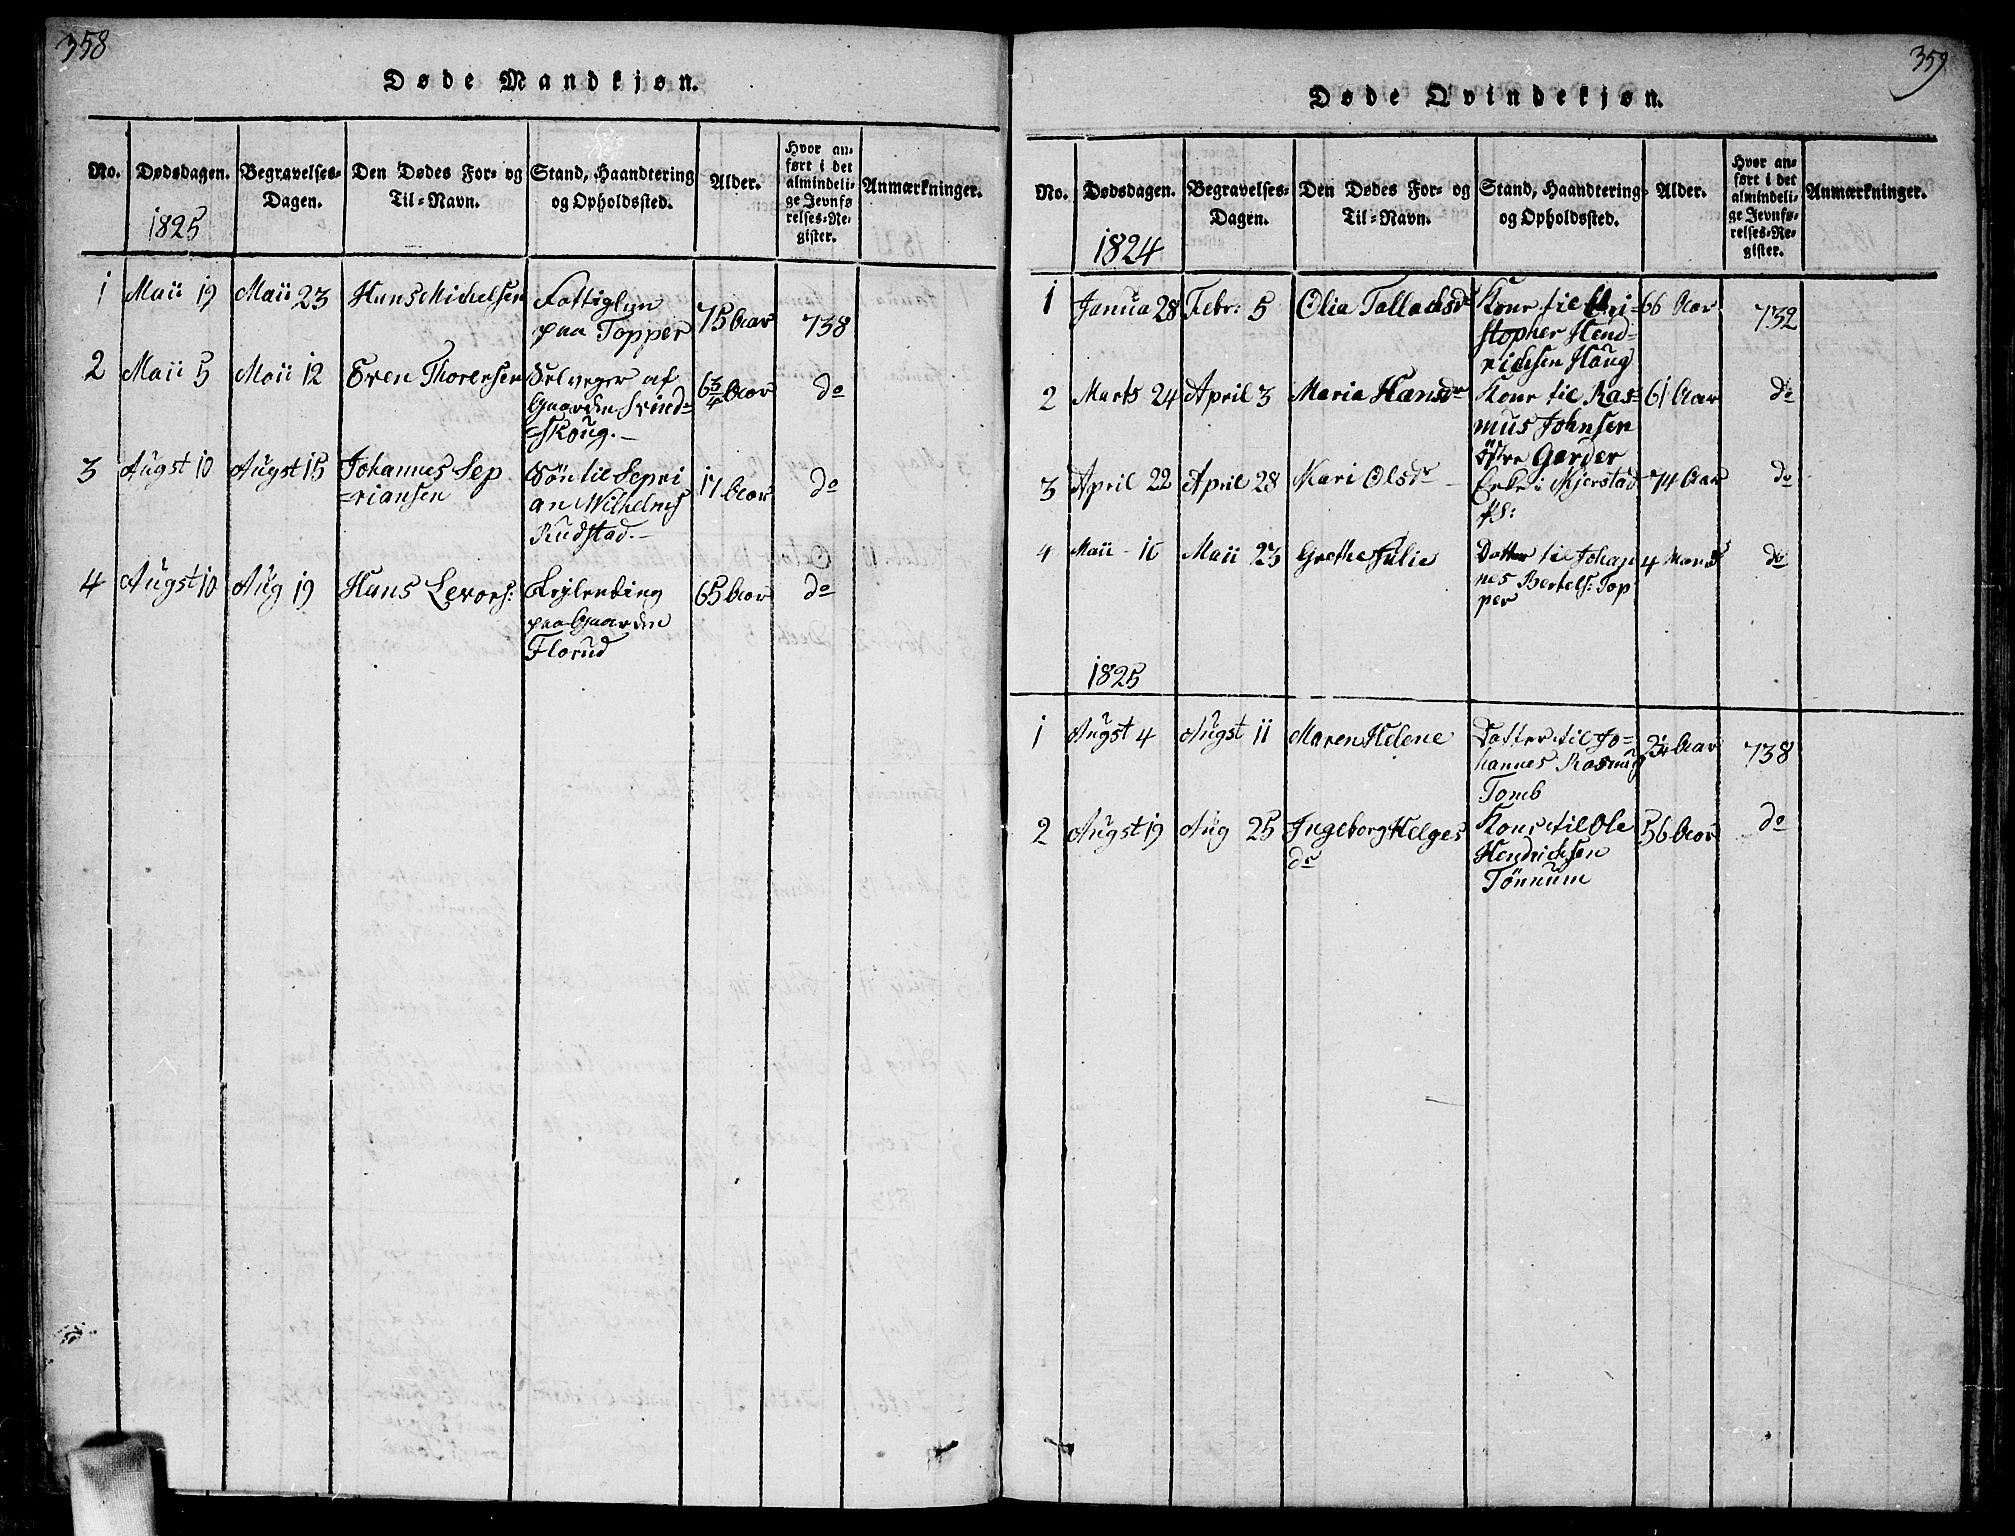 358
Døde Mandkjøn.
No. Dødsdagen. Begravelses- Dagen. Den Dødes For- og Til-Navn. Stand, Haandtering og Opholdssted. Alder. Hvor an- ført i det almindeli- ge Jevnfø- relses-Re- gister. Anmærkninger.
1825
1 Maii 19 Maii 23 Hans Mickelsen Fattiglem 75 Aar 738
paa Topper
2 Maii 5 Maii 12 Sven Thorersen Selveger af 63/4 Aar do
Gaarden Svind-
=skoug.-
3 Augst 10 Augst 15 Johannes Sep Sön til Sepri 17 Aar do
=riansen an Wilhelms
Rudstad.-
4 Augst 10 Aug 19 Hans Levors: Leylending 65 Aar do
paa Gaarden
Florud
359
Døde Qvindekjøn.
No. Dødsdagen. Begravelses- Dagen. Den Dødes For- og Til-Navn. Stand, Haandtering og Opholdssted. Alder. Hvor an- ført i det almindeli- ge Jevnfø- relses-Re- gister. Anmærkninger.
1824
1 Janua 28 Febr: 5 Olia Talladsdr Kone til Chri- 66 Aar 732
stopher Hend-
richsen Haug
2 Marts 24 April 3 Maria Hansdr Kone til Ras- 61 Aar do
mus Johnsen
östre Gerder
3 April 22 April 28 Mari Olsdr Enke i Kjerstad 74 Aar do
4 Maii - 16 Maii 23 Grethe Julie Datter til Johan 4 Maned do
nes Bertels: Top
per
1825
1 Augst 4 Augst 11 Maren Helene Datter til Jo- Aar 738
hannes Rasmus
Tomb
2 Augst 19 Aug 25 Ingeborg Helges Kone til Ole 56 Aar do
dr Hendrichsen
Tönnum